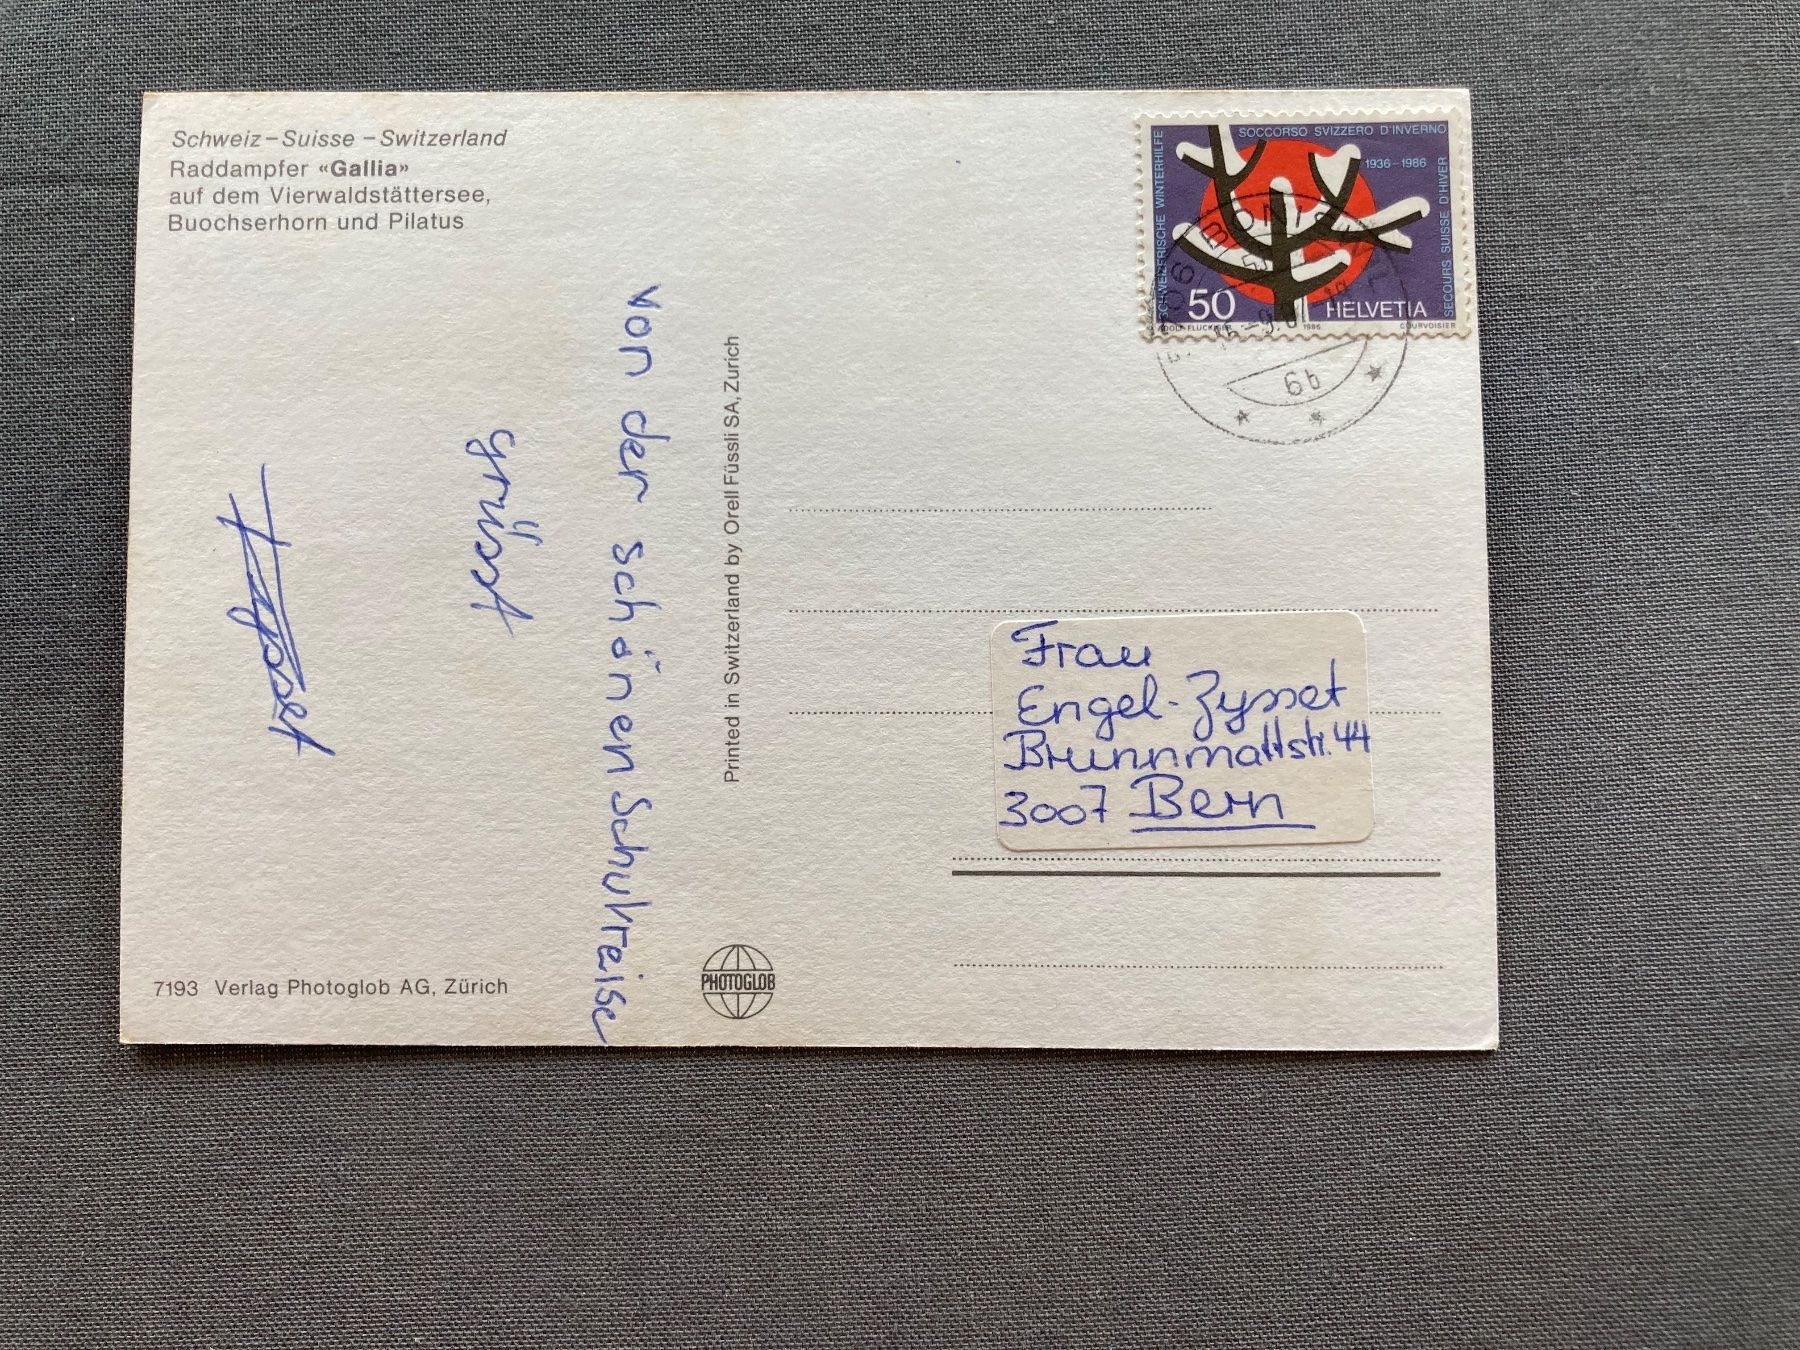 Schweiz – Suisse – Switzerland
Raddampfer «Gallia»
auf dem Vierwaldstättersee,
Buochserhorn und Pilatus
von der schönen Schulreise
grüsst
Zysset
7193 Verlag Photoglob AG, Zürich
Printed in Switzerland by Orell Füssli SA, Zurich
PHOTOGLOB
SCHWEIZERISCHE WINTERHILFE
SOCCORSO SVIZZERO D'INVERNO
1936–1986
SECOURS SUISSE D'HIVER
50
HELVETIA
1986
COURVOISIER
Frau
Engel-Zysset
Brunnmattstr. 44
3007 Bern